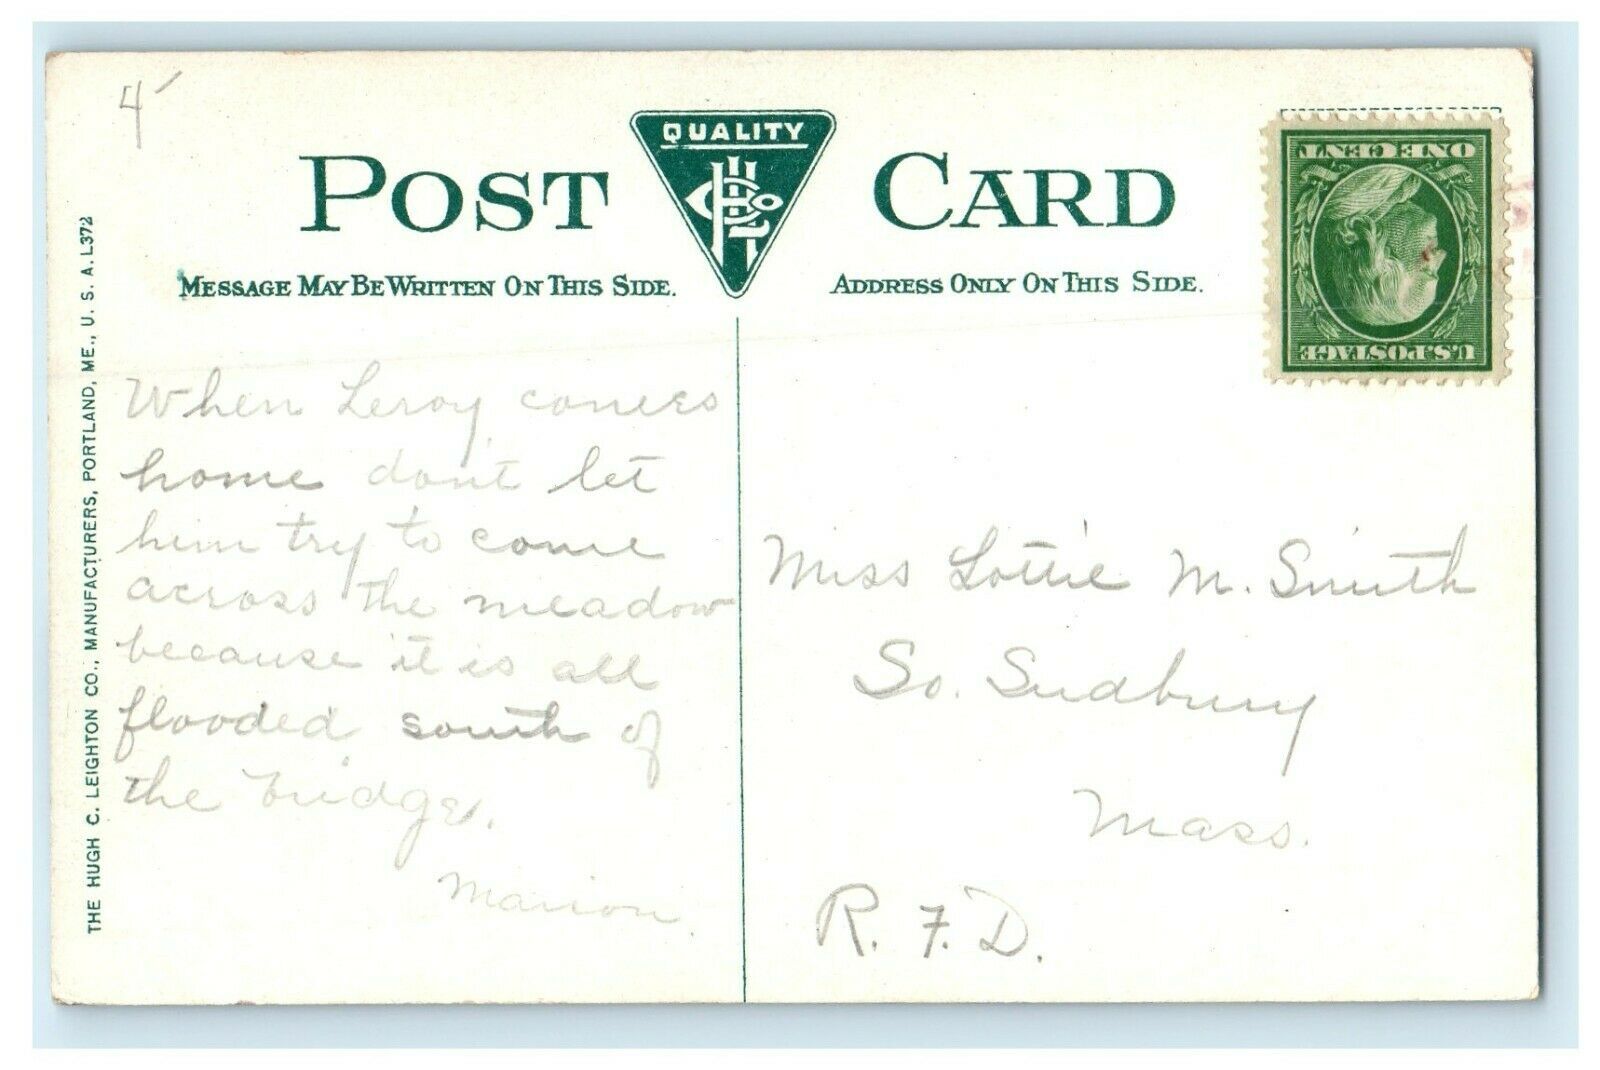 4
QUALITY
POST CARD
MESSAGE MAY BE WRITTEN ON THIS SIDE.
ADDRESS ONLY ON THIS SIDE.
ONE CENT
U.S. POSTAGE
THE HUGH C. LEIGHTON CO., MANUFACTURERS, PORTLAND, ME., U. S. A. L372
When Leroy comes
home don't let
him try to come
across the meadow
because it is all
flooded south of
the bridge.
Marion.
Miss Lottie M. Smith
So. Sudbury
Mass.
R. F. D.